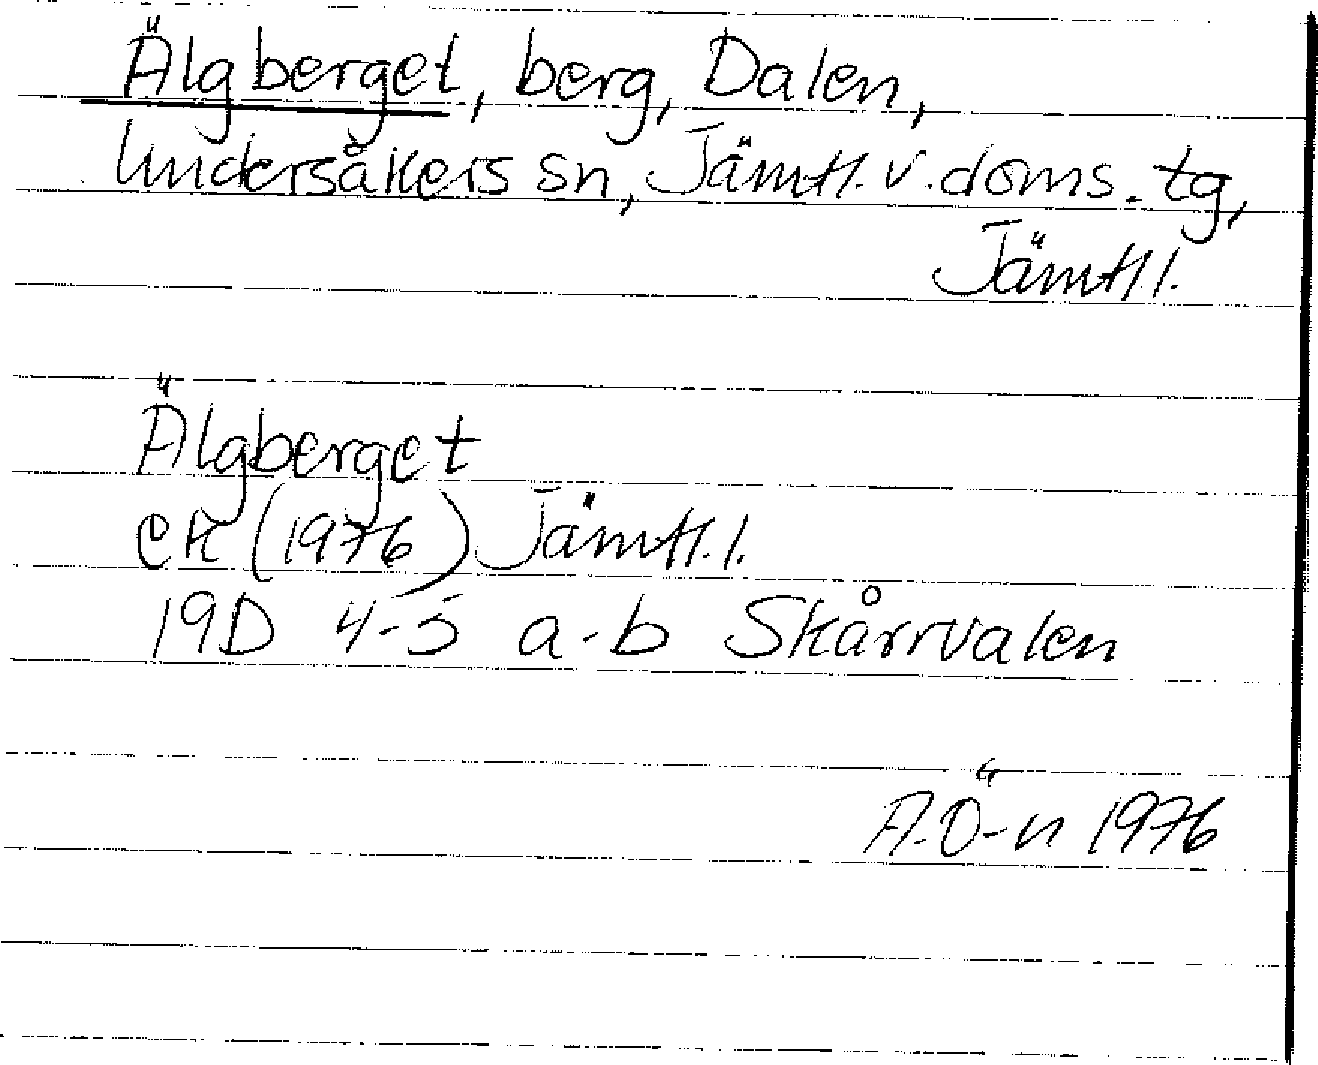 Älgberget, berg, Dalen,
Undersåkers sn, Jämtl. v. doms. tg,
Jämtl. l.
Älgberget
ek (1976) Jämtl. l.
19D 4-5 a-b Skårrvalen
A. Ö-n 1976